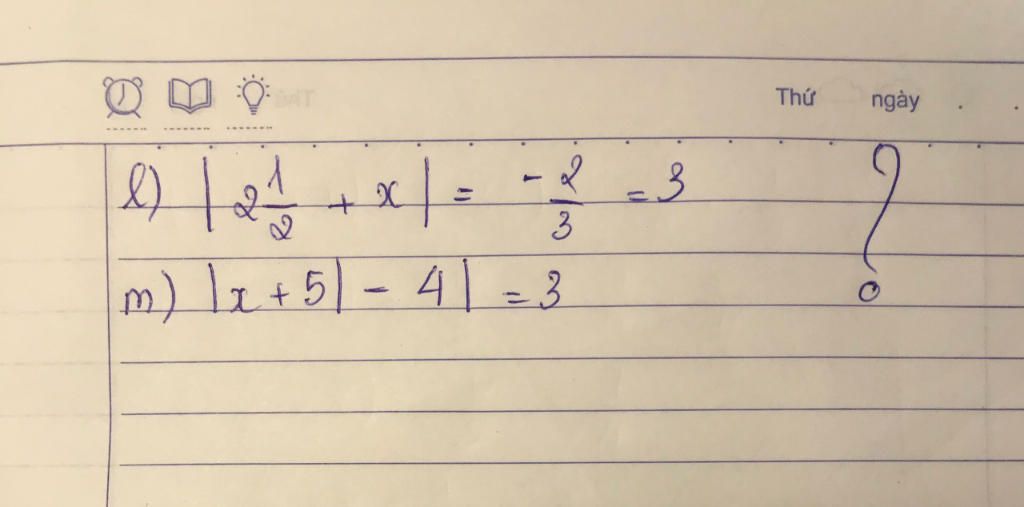 Thứ ngày
l) | 2 1/2 + x | = -2/3 = 3 ?
m) |x + 5| - 4| = 3